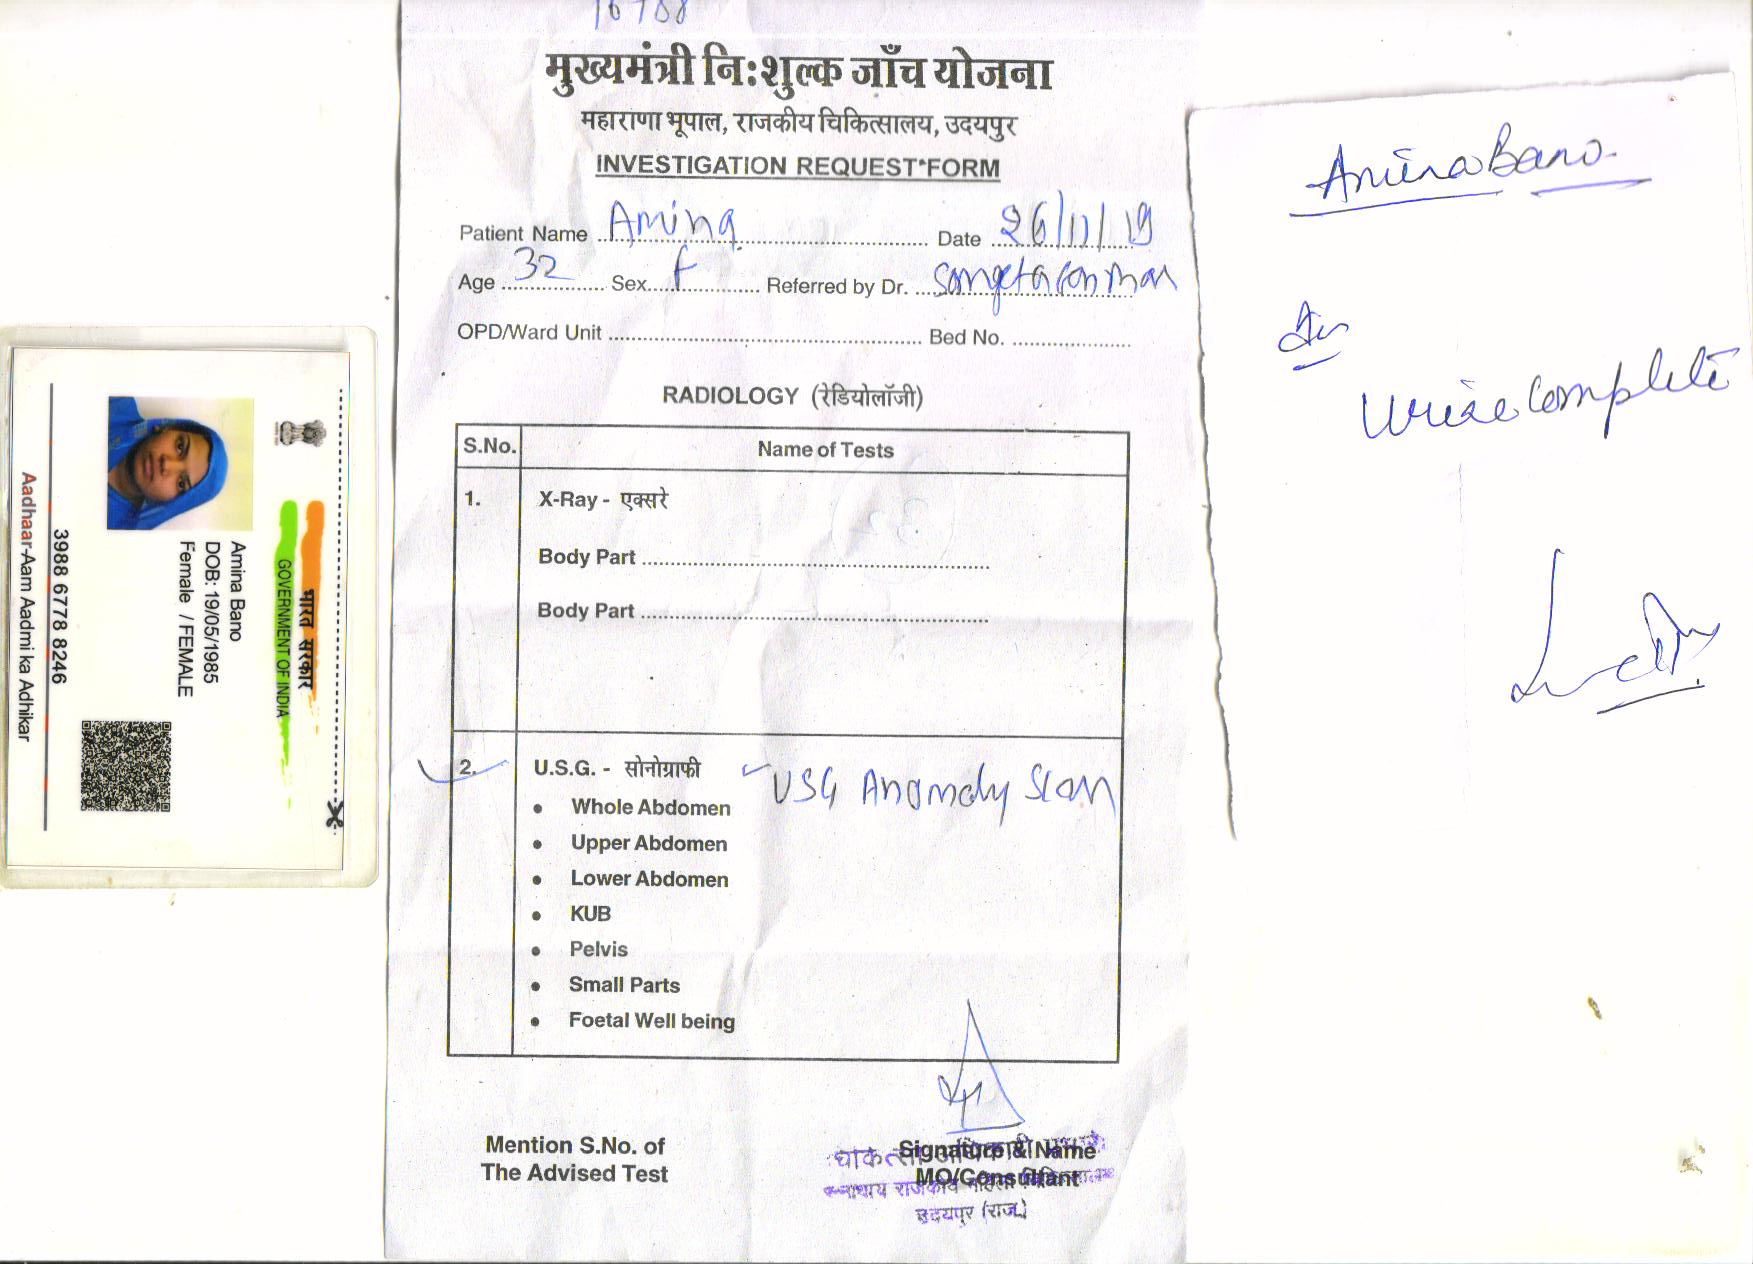 भारत सरकार
GOVERNMENT OF INDIA
Amina Bano
DOB: 19/05/1985
Female / FEMALE
3988 6778 8246
Aadhaar-Aam Aadmi ka Adhikar
मुख्यमंत्री नि:शुल्क जाँच योजना
महाराणा भूपाल, राजकीय चिकित्सालय, उदयपुर
INVESTIGATION REQUEST FORM
Patient Name Amina Date 26/11/19
Age 32 Sex F Referred by Dr.
OPD/Ward Unit Bed No.
RADIOLOGY (रेडियोलॉजी)
S.No. Name of Tests
1. X-Ray - एक्सरे
Body Part
Body Part
2. U.S.G. - सोनोग्राफी USG Anomaly Scan
• Whole Abdomen
• Upper Abdomen
• Lower Abdomen
• KUB
• Pelvis
• Small Parts
• Foetal Well being
Mention S.No. of
The Advised Test
Signature & Name
MO/Consultant
उदयपुर (राज.)
Amina Bano
Urine Complete